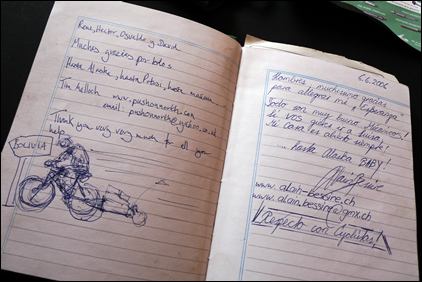 Rene, Hector, Osvaldo y David
Muchas gracias por todos
Hasta Alaska, hasta Potosi, hasta mañana
Tim
www.pushonnorth.com
email pushonnorth@yahoo.co.uk
Thank you very very much for all your
help
BOLIVIA
6.6.2006
Hombres, muchisimas gracias
para alegrar mi "esperanza"
Todo son muy buena
Si vos quiere ir a Suiza
Mi casa les abierto siempre!
... Hasta Alaska BABY!
Alain Bessire
www.alain-bessire.ch
www.alain.bessire@gmx.ch
¡Respecto con Cyclistas!